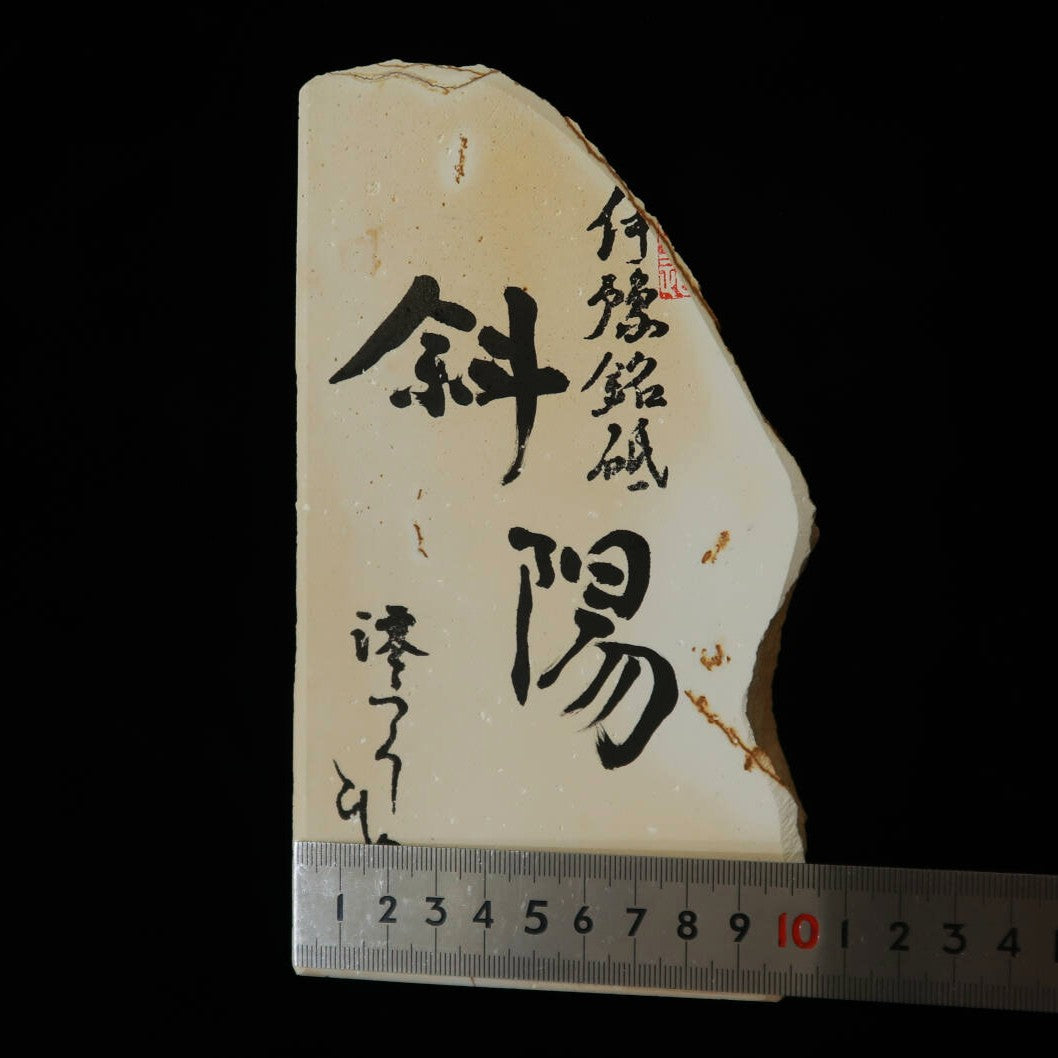 伊豫銘砥
斜陽
1 2 3 4 5 6 7 8 9 10 1 2 3 4